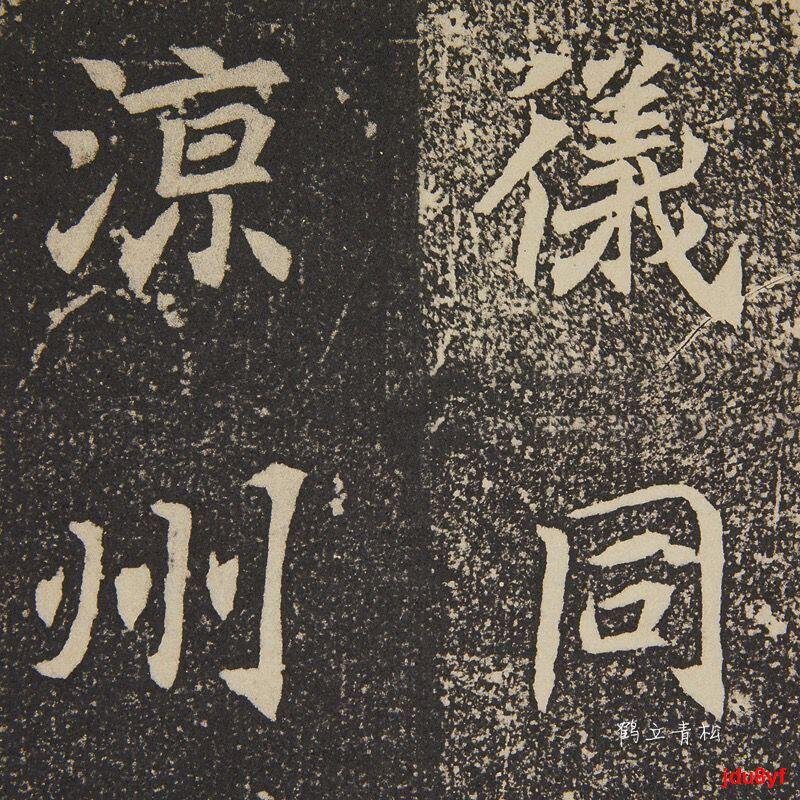 儀同
涼州
鹤立青松
jdu8yf